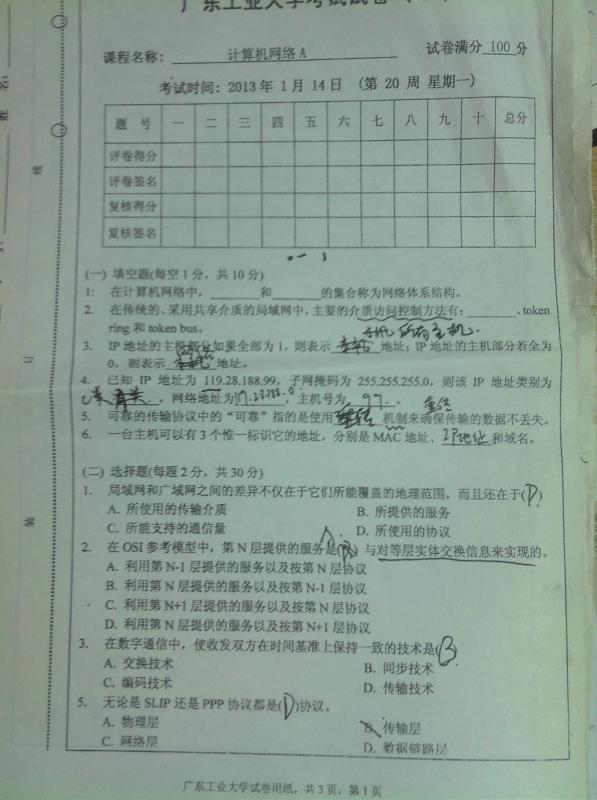 广东工业大学考试试卷
课程名称: 计算机网络A 试卷满分 100 分
考试时间: 2013 年 1 月 14 日 (第 20 周 星期一)
题 号 一 二 三 四 五 六 七 八 九 十 总分
评卷得分
评卷签名
复核得分
复核签名
(一) 填空题(每空 1 分，共 10 分)
1: 在计算机网络中，______和______的集合称为网络体系结构。
2. 在传统的、采用共享介质的局域网中，主要的介质访问控制方法有: ______、token
ring 和 token bus。
所有主机.
3. IP 地址的主机部分如果全部为 1，则表示 地址; IP 地址的主机部分若全为
0，则表示 地址。
4. 已知 IP 地址为 119.28.188.99，子网掩码为 255.255.255.0，则该 IP 地址类别为
，网络地址为 ，主机号为 。
重传
5. 可靠的传输协议中的“可靠”指的是使用 重传 机制来确保传输的数据不丢失。
6. 一台主机可以有 3 个惟一标识它的地址，分别是 MAC 地址、IP地址 和域名。
(二) 选择题(每题 2 分，共 30 分)
1. 局域网和广域网之间的差异不仅在于它们所能覆盖的地理范围，而且还在于(D)
A. 所使用的传输介质 B. 所提供的服务
C. 所能支持的通信量 D. 所使用的协议
A
2. 在 OSI 参考模型中，第 N 层提供的服务是( ) 与对等层实体交换信息来实现的。
A. 利用第 N-1 层提供的服务以及按第 N 层协议
B. 利用第 N 层提供的服务以及按第 N-1 层协议
C. 利用第 N+1 层提供的服务以及按第 N 层协议
D. 利用第 N 层提供的服务以及按第 N+1 层协议
3. 在数字通信中，使收发双方在时间基准上保持一致的技术是(B)
A. 交换技术 B. 同步技术
C. 编码技术 D. 传输技术
5. 无论是 SLIP 还是 PPP 协议都是(D)协议。
A. 物理层 B. 传输层
C. 网络层 D. 数据链路层
广东工业大学试卷用纸，共 3 页，第 1 页
姓 名:
线
订
装